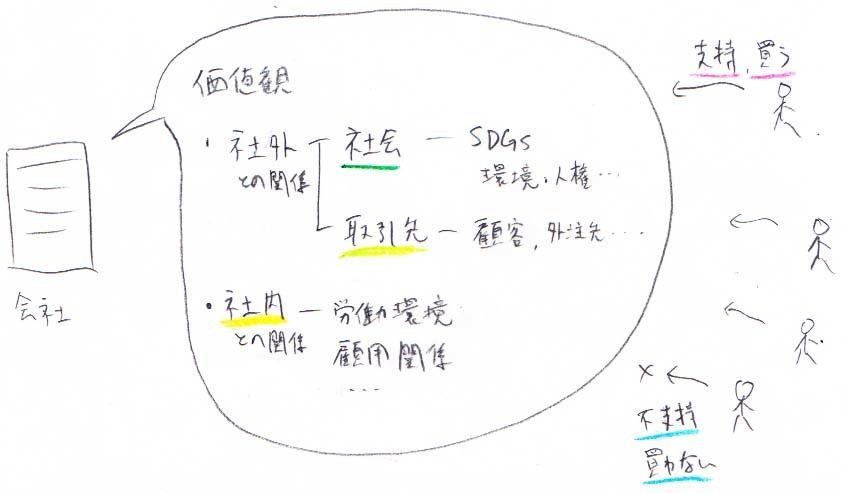 価値観
・社外 - 社会 - SDGs
との関係
環境・人権…
取引先 - 顧客, 外注先…
・社内 - 労働環境
との関係
顧用関係
…
会社
支持, 買う
×
不支持
買わない